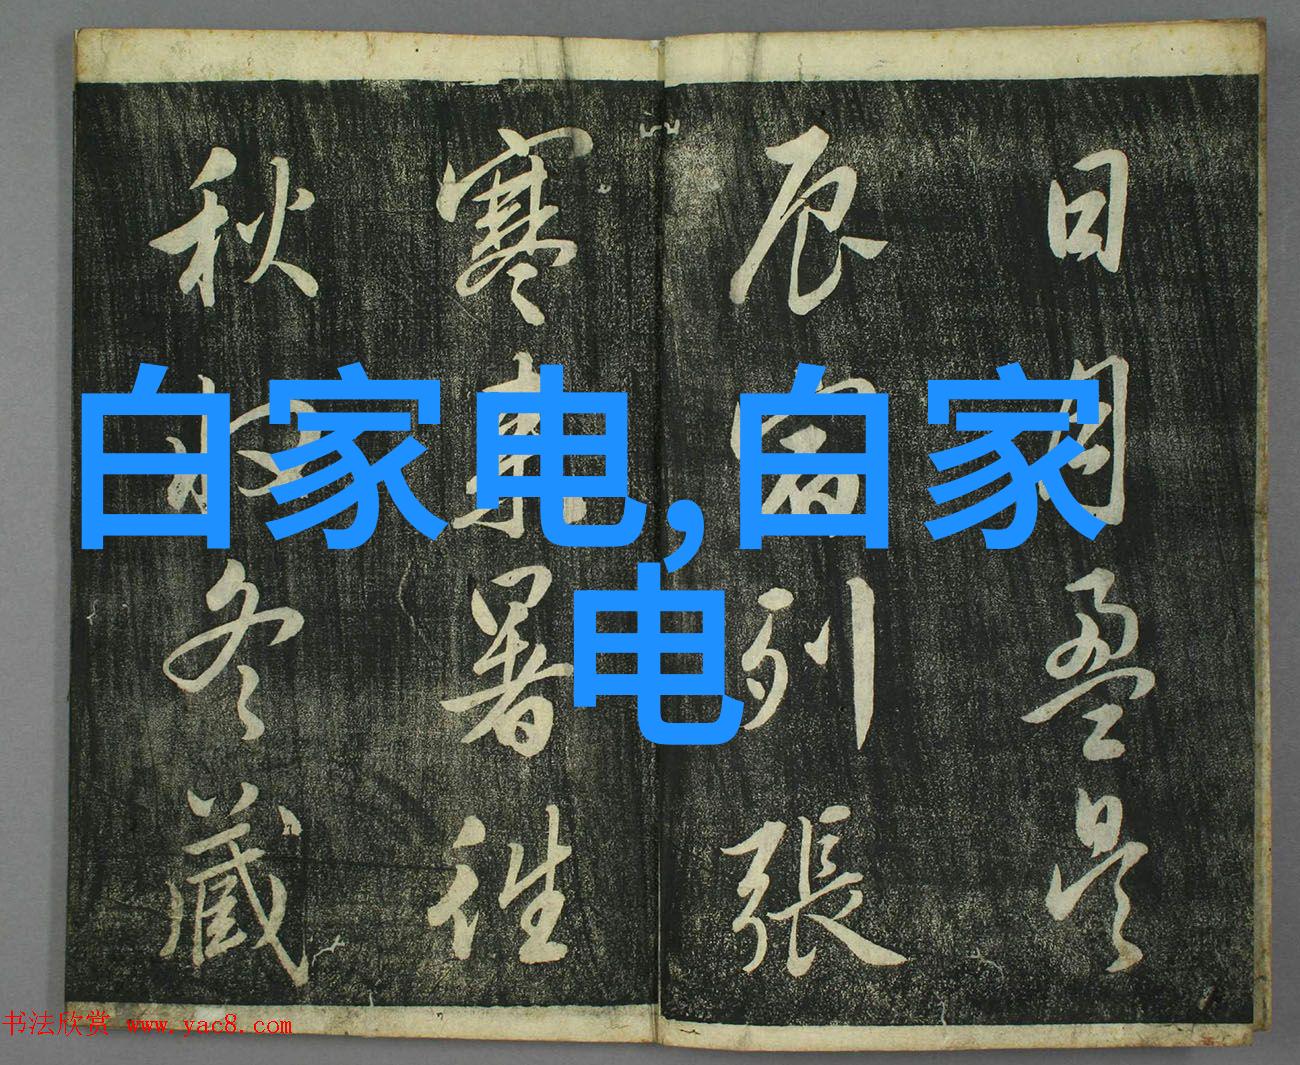 日月盈昃
辰宿列張
寒來暑往
秋收冬藏
白家电,白家
电
书法欣赏 www.yac8.com